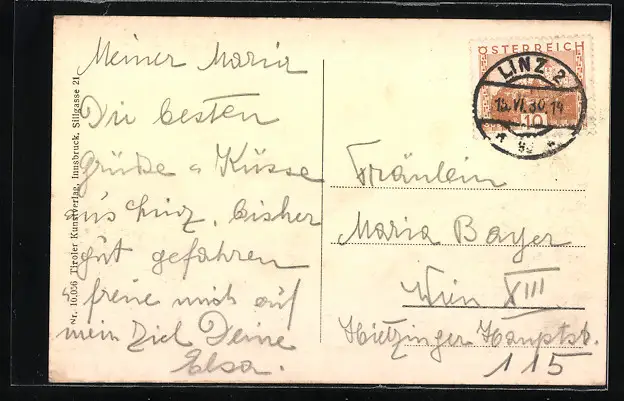 Meiner Maria
Die besten
Grüße u Küsse
aus Linz, bisher
gut gefahren
u freue mich auf
mein Ziel Deine
Elsa.
Nr. 10,056 Tiroler Kunstverlag, Innsbruck, Sillgasse 21
ÖSTERREICH
10
LINZ 2
15.VI.30.14
Fräulein
Maria Bayer
Wien XIII
Hietzinger Hauptstr.
115